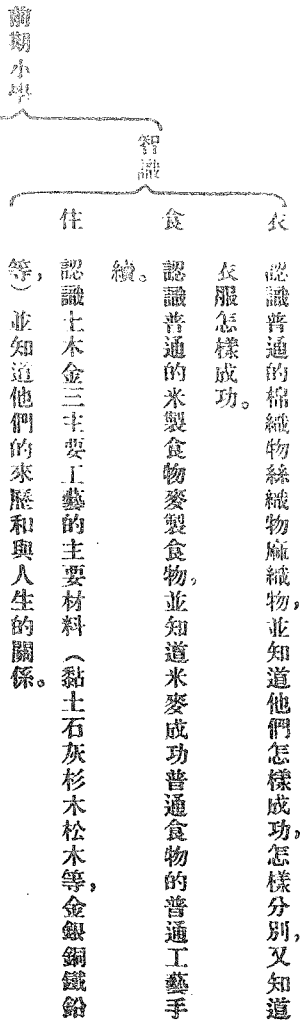 前期小學
智識
衣
認識普通的棉織物絲織物麻織物，並知道他們怎樣成功，怎樣分別，又知道
衣服怎樣成功。
食
認識普通的米製食物麥製食物，並知道米麥成功普通食物的普通工藝手
續。
住
認識土木金三主要工藝的主要材料（黏土石灰杉木松木等，金銀銅鐵鉛
等，）並知道他們的來歷和與人生的關係。